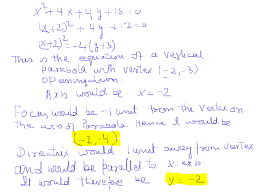 x²+4x+4y+16=0
(x+2)²+4y+12=0
(x+2)²=-4(y+3)
This is the equation of a vertical
parabola with vertex (-2,-3)
opening down.
Axis would be x=-2
Focus would be 1 unit from the vertex on
the axis of Parabola. Hence it would be
(-2,-4)
Directrix would 1 unit away from vertex
and would be parallel to x-axis
It would therefore be y=-2